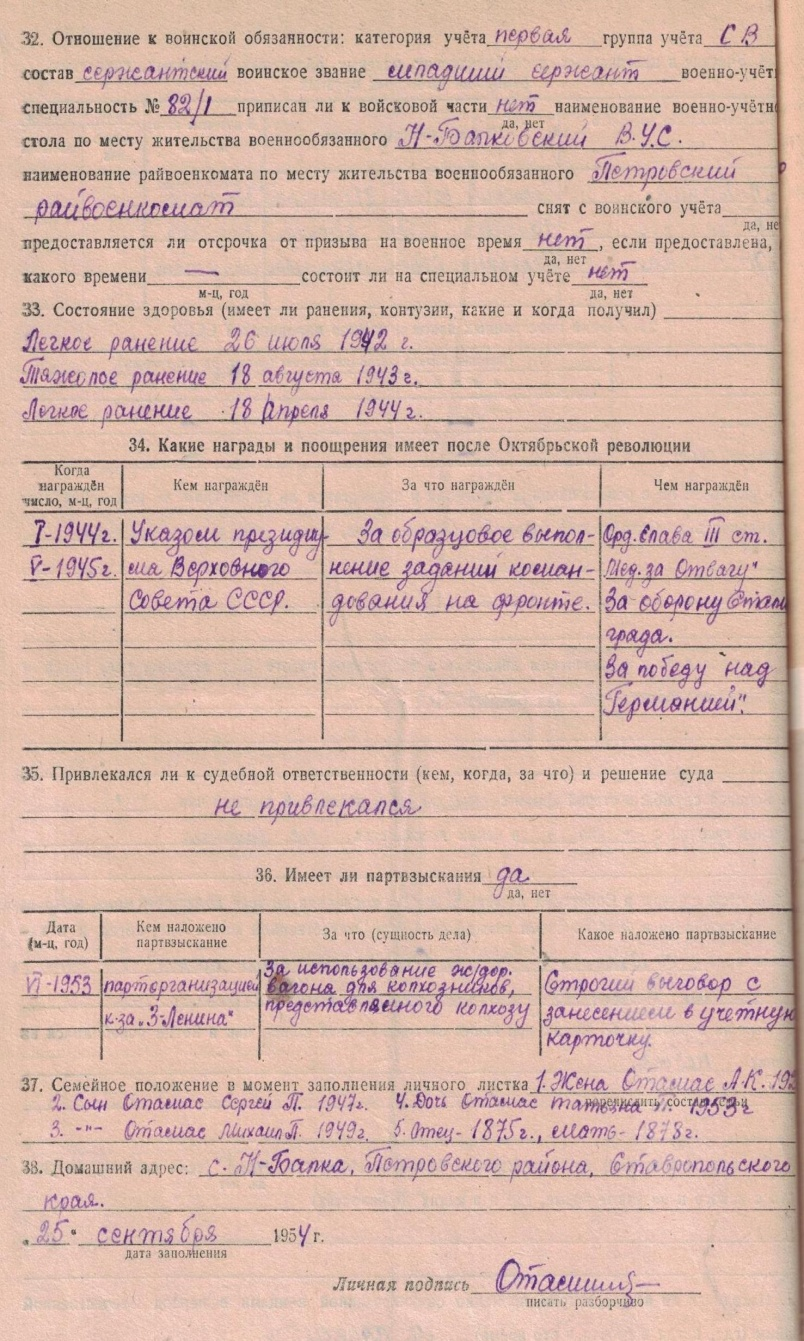 32. Отношение к воинской обязанности: категория учёта первая группа учёта СВ
состав сержантский воинское звание младший сержант военно-учёт
специальность № 82/1 приписан ли к войсковой части нет наименование военно-учётн
да, нет
стола по месту жительства военнообязанного Н-Балковский В.У.С.
наименование райвоенкомата по месту жительства военнообязанного Петровский
райвоенкомат снят с воинского учёта
да, не
предоставляется ли отсрочка от призыва на военное время нет, если предоставлена,
да, нет
какого времени — состоит ли на специальном учёте нет
м-ц, год да, нет
33. Состояние здоровья (имеет ли ранения, контузии, какие и когда получил)
Легкое ранение 26 июля 1942 г.
Тяжолое ранение 18 августа 1943 г.
Легкое ранение 18 Апреля 1944 г.
34. Какие награды и поощрения имеет после Октябрьской революции
Когда награждён число, м-ц, год Кем награждён За что награждён Чем награждён
I-1944г. Указом президиу- За образцовое выпол- Орд. Слава III ст.
V-1945г. ма Верховного нение заданий коман- Мед. за Отвагу"
Совета СССР. дования на фронте. За оборону Стали
града.
За победу "над
Германией".
35. Привлекался ли к судебной ответственности (кем, когда, за что) и решение суда
не привлекался
36. Имеет ли партвзыскания да
да, нет
Дата (м-ц, год) Кем наложено партвзыскание За что (сущность дела) Какое наложено партвзыскание
За использование ж/дор.
VI-1953 парторганизацией вагона для колхозников, Строгий выговор с
к-за „З-Ленина" представленного колхозу занесением в учетную
карточку.
37. Семейное положение в момент заполнения личного листка 1. Жена Отамас А.К. 192
перечислить состав семьи
2. Сын Отамас Сергей П. 1947г. 4. Дочь Отамас 1953г
3. -"- Отамас Михаил П. 1949г. 5. Отец - 1875г., мать - 1878г.
38. Домашний адрес: с. Н-Балка, Петровского района, Ставропольского
края.
„25" сентября 1954 г.
дата заполнения
Личная подпись
писать разборчиво